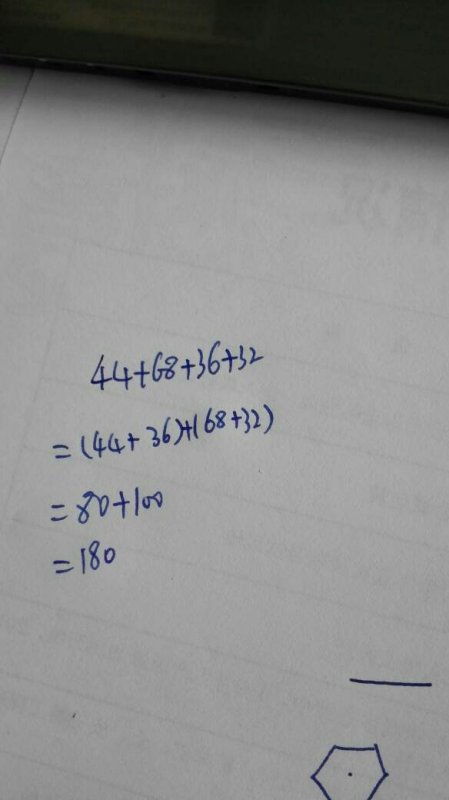 44+68+36+32
=(44+36)+(68+32)
=80+100
=180